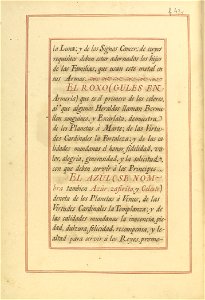 la Luna; y de los Signos Cancer; de cuyos
requisitos deben estar adornados los hijos
de las Familias, que usan este metal en
sus Armas.
EL ROXO (GULES EN
Armeria) que es el primero de los colores,
al que algunos Heraldos llaman Berme-
llon, sanguineo, y Escarlata, demuestra
de los Planetas à Marte; de las Virtu-
des Cardinales la Fortaleza; y de las ca-
lidades mundanas el honor, fidelidad, va-
lor, alegria, generosidad, y la solicitud
con que deben servir à los Principes.
EL AZUL (SE NOM-
bra tambien Azur, zafirito, y Celeste)
denota de los Planetas à Venus, de las
Virtudes Cardinales la Templanza; y de
las calidades mundanas la inocencia, pie-
dad, dulzura, felicidad, recompensa, y le-
altad para servir à los Reyes, prome-